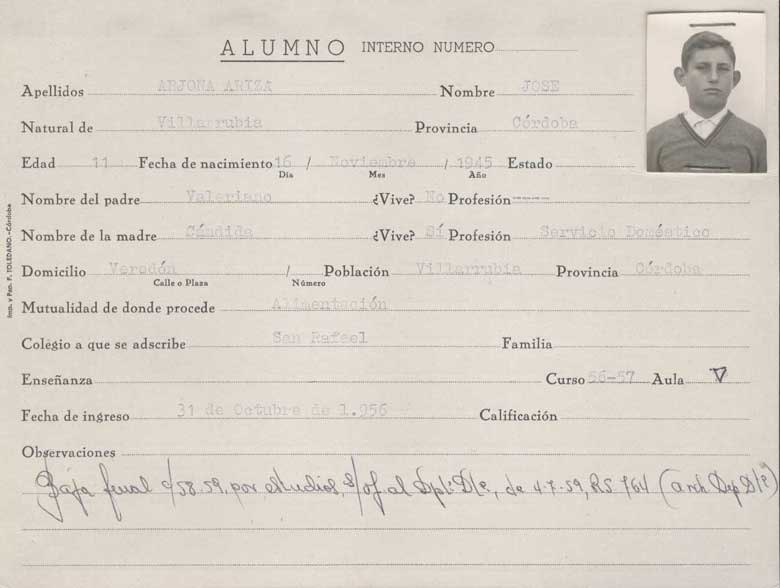 ALUMNO INTERNO NUMERO
Apellidos ARJONA ARIZA Nombre JOSE
Natural de Villarrubia Provincia Córdoba
Edad 11 Fecha de nacimiento 16 / Noviembre / 1945 Estado
Día Mes Año
Nombre del padre Valeriano ¿Vive? No Profesión ----
Nombre de la madre Cándida ¿Vive? Sí Profesión Servicio Doméstico
Domicilio Veredón / Población Villarrubia Provincia Córdoba
Calle o Plaza Número
Mutualidad de donde procede Alimentación
Colegio a que se adscribe San Rafael Familia
Enseñanza Curso 56-57 Aula V
Fecha de ingreso 31 de Octubre de 1.956 Calificación
Observaciones
Baja final c/58-59, por estudios, s/of al Dpt: D/c, de 4-7-59, RS 764 (arch Dep D/c)
Imp. y Pap. F. TOLEDANO.-Córdoba